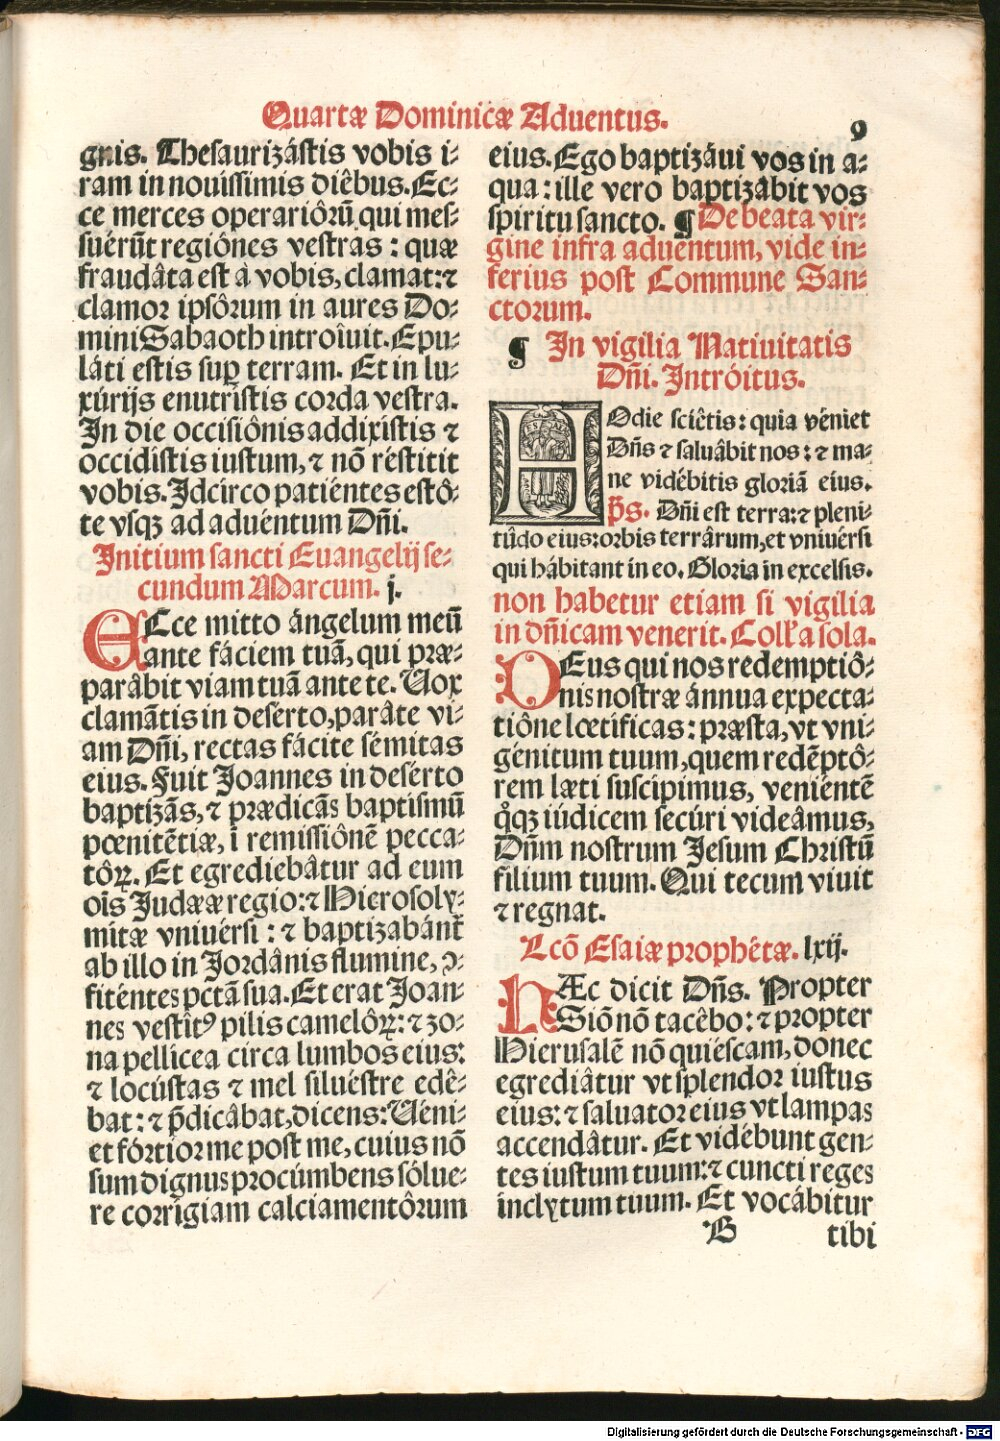 Quartæ Dominicæ Aduentus.
9
gnis. Thesaurizástis vobis i-
ram in nouissimis diêbus. Ec-
ce merces operariôrũ qui mes-
suérũt regiónes vestras : quæ
fraudâta est à vobis, clamat: ⁊
clamor ipsôrum in aures Do-
mini Sabaoth introîuit. Epu-
láti estis suꝑ terram. Et in lu-
xúrijs enutrístis corda vestra.
In die occisiônis addixistis ⁊
occidistis iustum, ⁊ nõ réstitit
vobis. Idcirco patiéntes estô-
te vsqꝫ ad aduéntum Dñi.
Initium sancti Euangelij se-
cundum Marcum. j.
ECce mitto ángelum meũ
ante fáciem tuã, qui præ-
parâbit viam tuã ante te. Uox
clamãtis in deserto, parâte vi-
am Dñi, rectas fácite sémitas
eius. Fuit Joannes in desérto
baptizãs, ⁊ prædicãs baptismũ
pœnitẽtiæ, ĩ remissiônẽ pecca-
tôꝝ. Et egrediebâtur ad eum
oĩs Judææ regio: ⁊ Hierosoly-
mitæ vniuérsi : ⁊ baptizabánt᷑
ab illo in Jordânis flumine, ꝯ-
fiténtes pctã sua. Et erat Joan-
nes vestîtꝰ pilis camelôꝝ: ⁊ zo-
na pellicea circa lumbos eius:
⁊ locústas ⁊ mel siluéstre edê-
bat: ⁊ p̃dicâbat, dicens: Uéni-
et fórtior me post me, cuius nõ
sum dignus procúmbens sólue-
re corrígiam calciamentôrum
eius. Ego baptizáui vos in a-
qua : ille vero baptizâbit vos
spiritu sancto. ¶ De beata vir-
gine infra aduentum, vide in-
ferius post Commune San-
ctorum.
¶ In vigilia Natiuitatis
Dñi. Intróitus.
HOdie sciêtis: quia véniet
Dñs ⁊ saluâbit nos: ⁊ ma-
ne vidébitis gloriã eius.
p̃s. Dñi est terra: ⁊ pleni-
tûdo eius: orbis terrârum, et vniuérsi
qui hábitant in eo. Gloria in excelsis.
non habetur etiam si vigilia
in dñicam venerit. Coll'a sola.
DEus qui nos redemptiô-
nis nostræ ánnua expecta-
tiône lœtificas : præsta, vt vni-
génitum tuum, quem redẽptô-
rem læti suscipimus, veniéntẽ
q̊qꝫ iúdicem secúri videâmus,
Dñm nostrum Jesum Christũ
filium tuum. Qui tecum viuit
⁊ regnat.
Lcõ Esaiæ prophêtæ. lxij.
HÆc dicit Dñs. Propter
Siõ nõ tacêbo: ⁊ propter
Hierusalẽ nõ quiéscam, donec
egrediâtur vt splendor iustus
eius: ⁊ saluator eius vt lampas
accendâtur. Et vidébunt gen-
tes iustum tuum: ⁊ cuncti reges
ínclytum tuum. Et vocâbitur
B
tibi
Digitalisierung gefördert durch die Deutsche Forschungsgemeinschaft - DFG